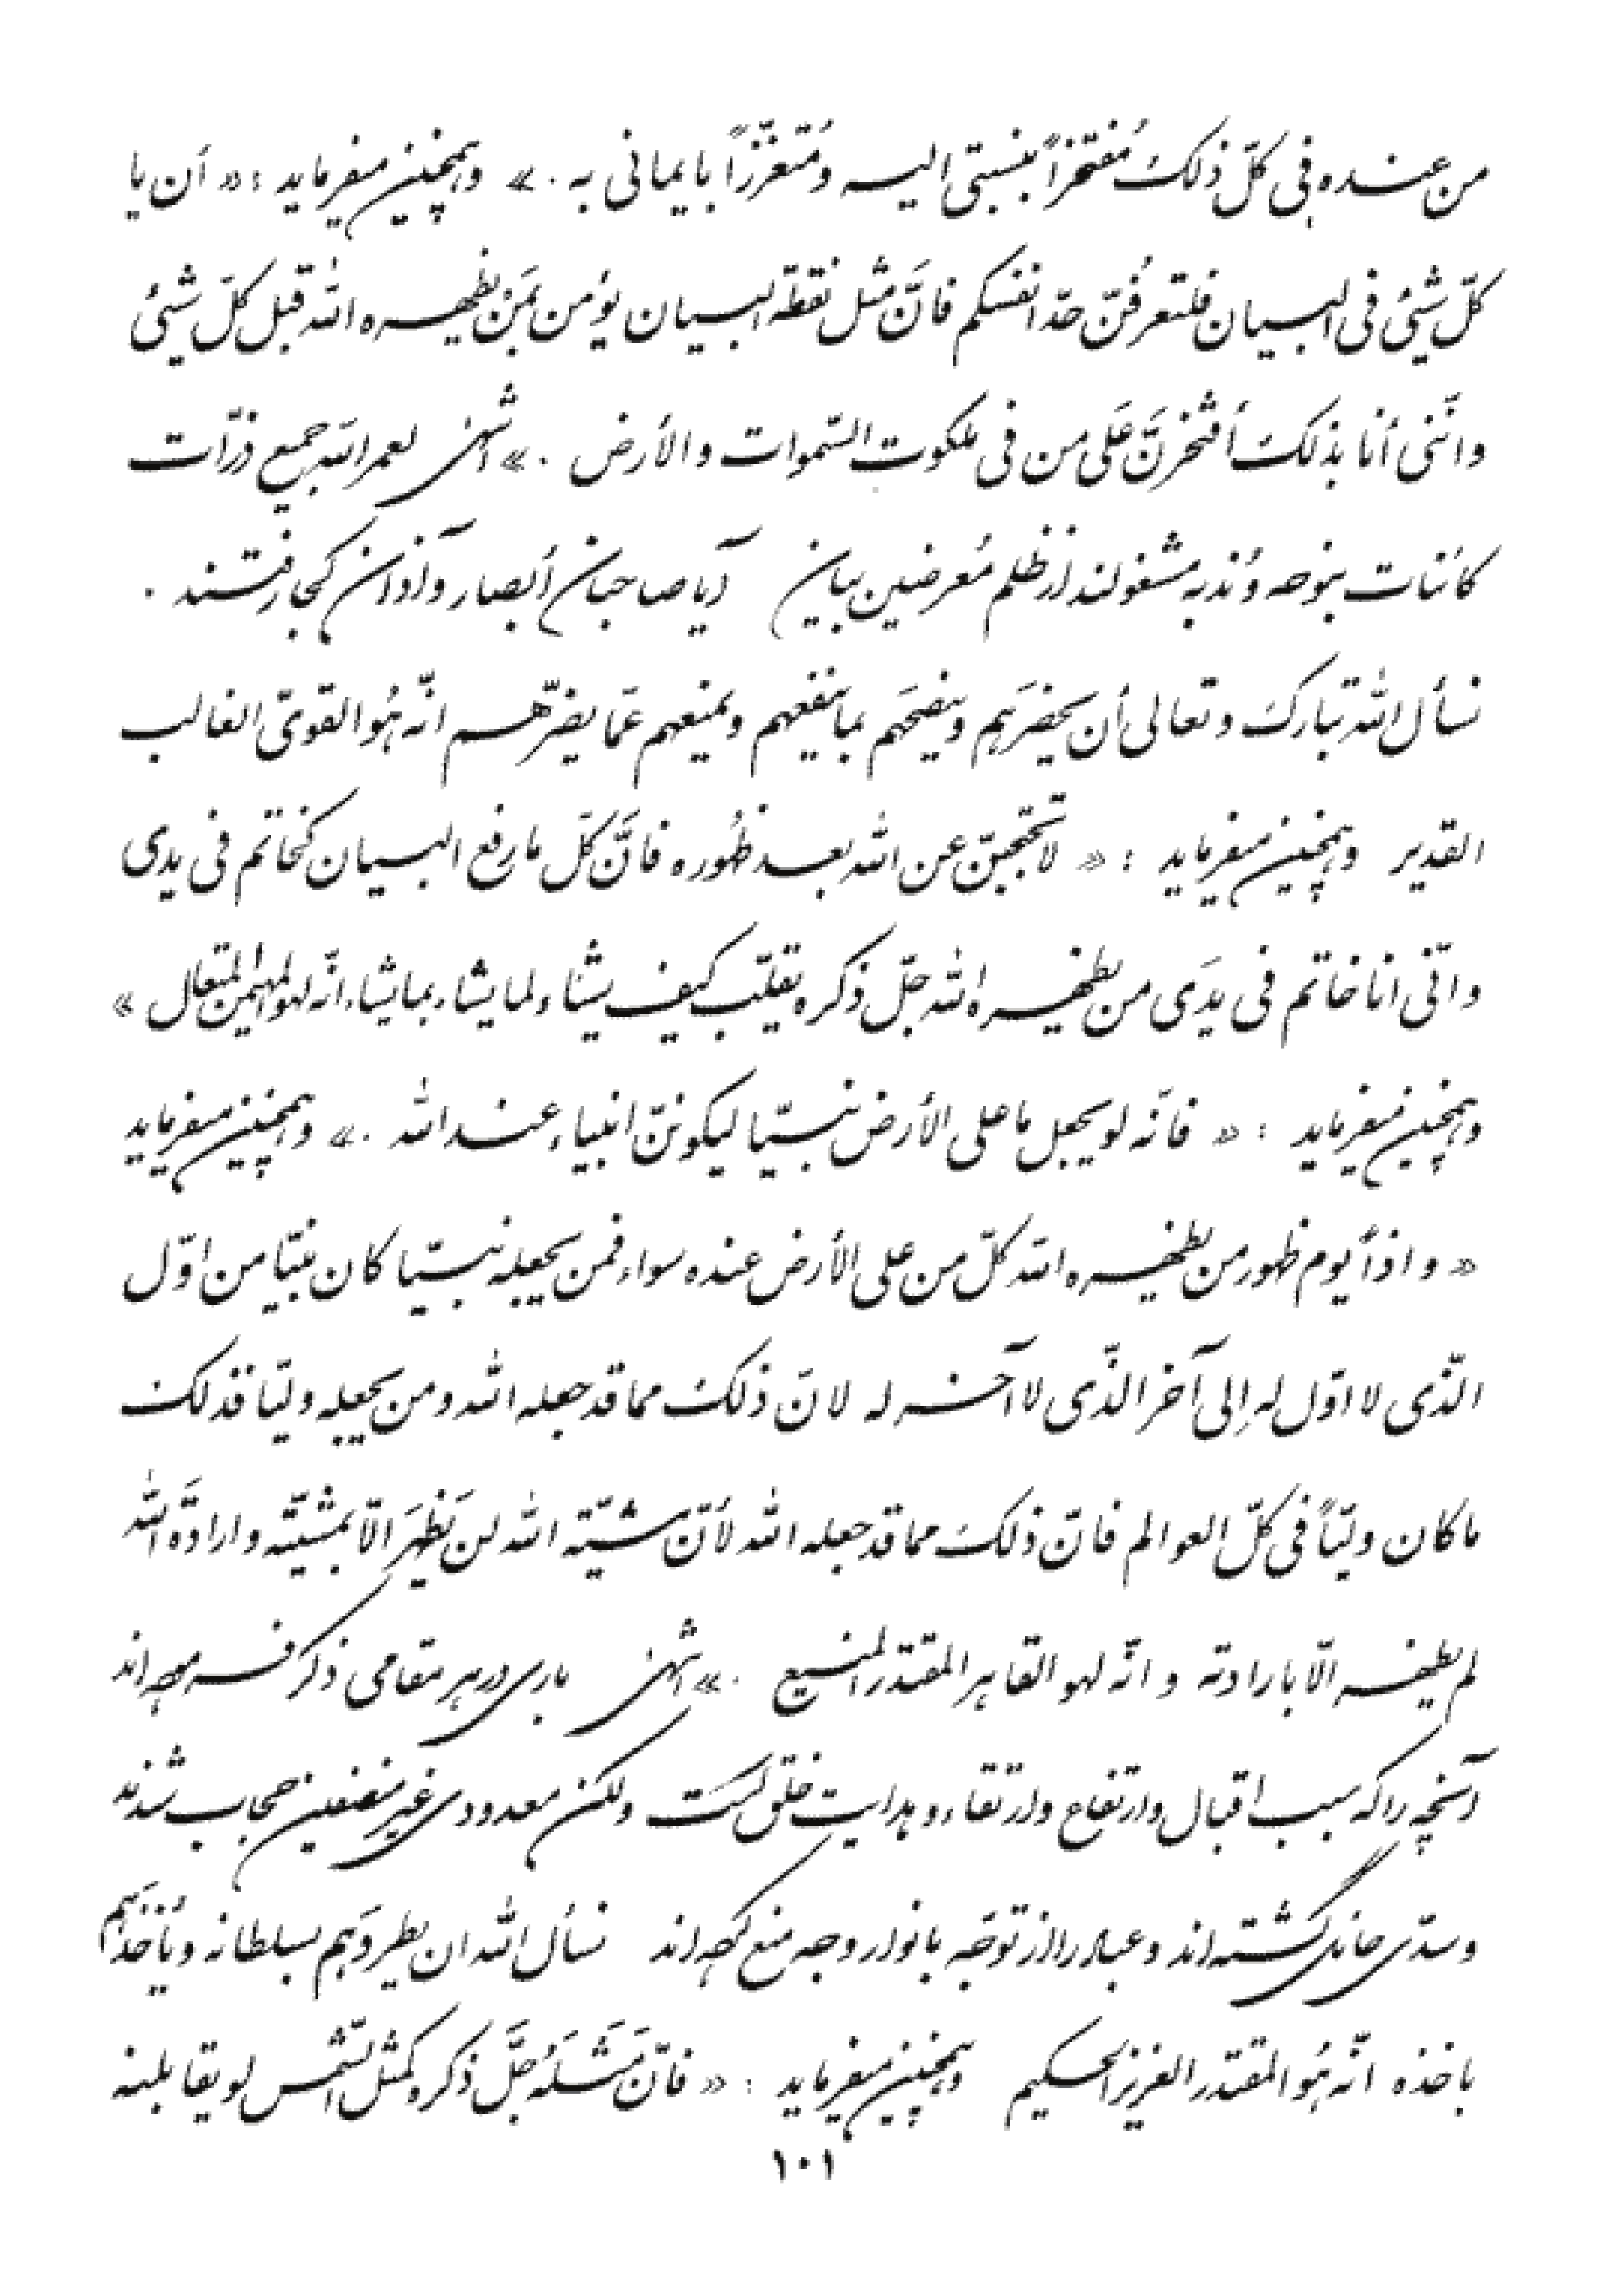 من عنده فی کلّ ذلک مُفتخراً بنسبتی الیه و مُتعزّزاً بایمانی به .» و همچنین میفرماید : « أن یا
کلّ شیئ فی البیان فلتعرفُنّ حدّ انفسکم فانَّ مثل نقطة البیان یؤمن بمَنْ یظهره اللّه قبل کلّ شیئ
و انّنی أنا بذلک أفتخرنَّ عَلی من فی ملکوت السّموات و الأرض .» انتهی لعمر اللّه جمیع ذرّات
کائنات بنوحه و ندبه مشغولند از ظلم مُعرضین بیان آیا صاحبان أبصار و آذان کجا رفتند .
نسأل اللّه تبارک و تعالی أن یحضرَهم و ینصحَهم بما ینفعهم و یمنعهم عمّا یضرّهم انّه هُو القویّ الغالب
القدیر و همچنین میفرماید : « لا تحتجبنّ عن اللّه بعد ظُهوره فانَّ کلّ ما رفع البیان کخاتم فی یدی
و انّنی انا خاتم فی یدَی من یظهره اللّه جلّ ذکره یقلّب کیف یشاء لما یشاء بما یشاء انّه لهو المهیمن المتعال »
و همچنین میفرماید : « فانّه لو یجعل ما علی الأرض نبیّا لیکوننّ انبیاء عند اللّه .» و همچنین میفرماید
« و اذاً یوم ظهور من یظهره اللّه کلّ من علی الأرض عنده سواء فمن یجعله نبیّا کان نبیّا من اوّل
الّذی لا اوّل له إلی آخر الّذی لا آخر له لانّ ذلک مما قد جعله اللّه و من یجعله ولیّا فذلک
ما کان ولیّاً فی کلّ العوالم فانّ ذلک مما قد جعله اللّه لأنّ مشیّة اللّه لن یَظهَرَ الّا بمشیّته و ارادةَ اللّه
لم یظهر الّا بارادته و انّه لهو القاهر المقتدر المنیع .» انتهی باری در هر مقامی ذکر فرموده‌اند
آنچه را که سبب اقبال و ارتفاع و ارتقاء و هدایت خلق است ولکن معدودی غیر منصفین حجاب شدند
و سدّی حائل گشته‌اند و عباد را از توجّه بانوار وجه منع کرده‌اند نسأل اللّه ان یطردَهم بسلطانه و یأخذَهم
باخذه انّه هُو المقتدر العزیز الحکیم و همچنین میفرماید : « فانّ مَثَلَهُ جلَّ ذکره کمثل الشّمس لو یقابلنه
۱۰۱